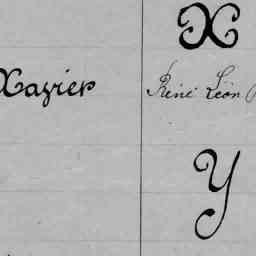 X
Xavier
René Léon
Y